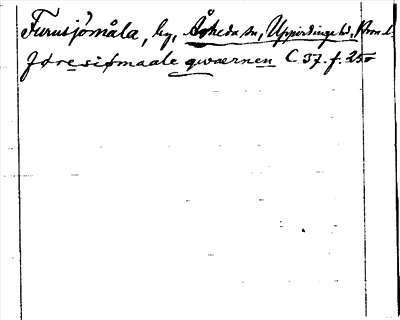 Furusjömåla, by, Åsheda sn, Uppvidinge hd, Kron. l.
føresiømaale qwaernen C 37. f. 25v